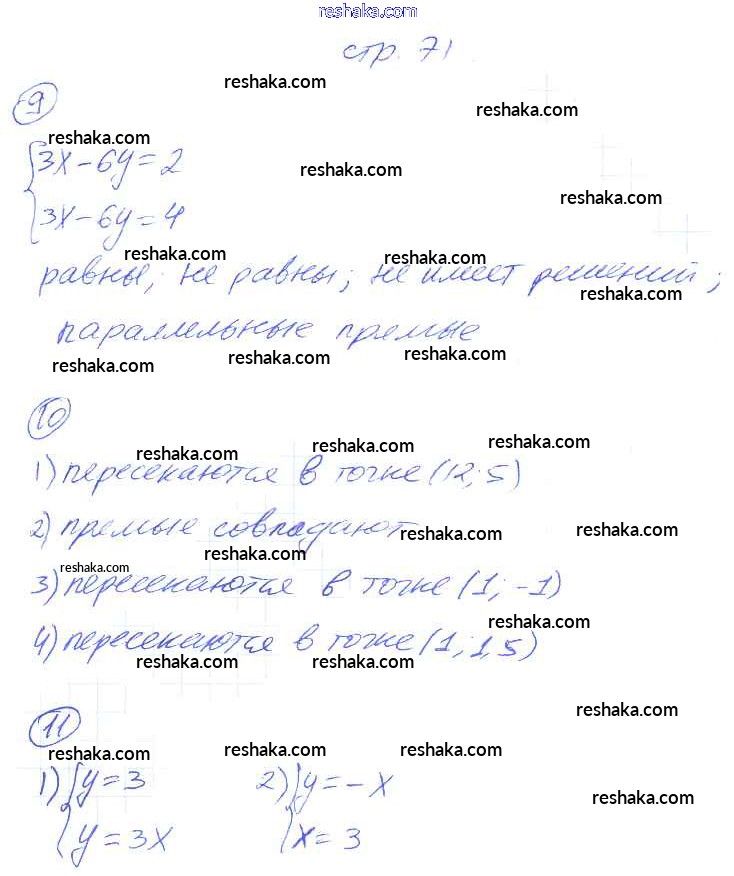 reshaka.com
стр. 71
reshaka.com
reshaka.com
9
reshaka.com
{3x-6y=2
reshaka.com
reshaka.com
3x-6y=4
reshaka.com
reshaka.com
равны; не равны; не имеет решений;
reshaka.com
параллельные прямые
reshaka.com
reshaka.com
reshaka.com
10
reshaka.com
reshaka.com
reshaka.com
1) пересекаются в точке (12; 5)
2) прямые совпадают
reshaka.com
reshaka.com
reshaka.com
reshaka.com
3) пересекаются в точке (1; -1)
reshaka.com
4) пересекаются в точке (1; 1,5)
reshaka.com
reshaka.com
reshaka.com
11
reshaka.com
reshaka.com
reshaka.com
1) {y=3 2) {y=-x
reshaka.com
y=3x x=3